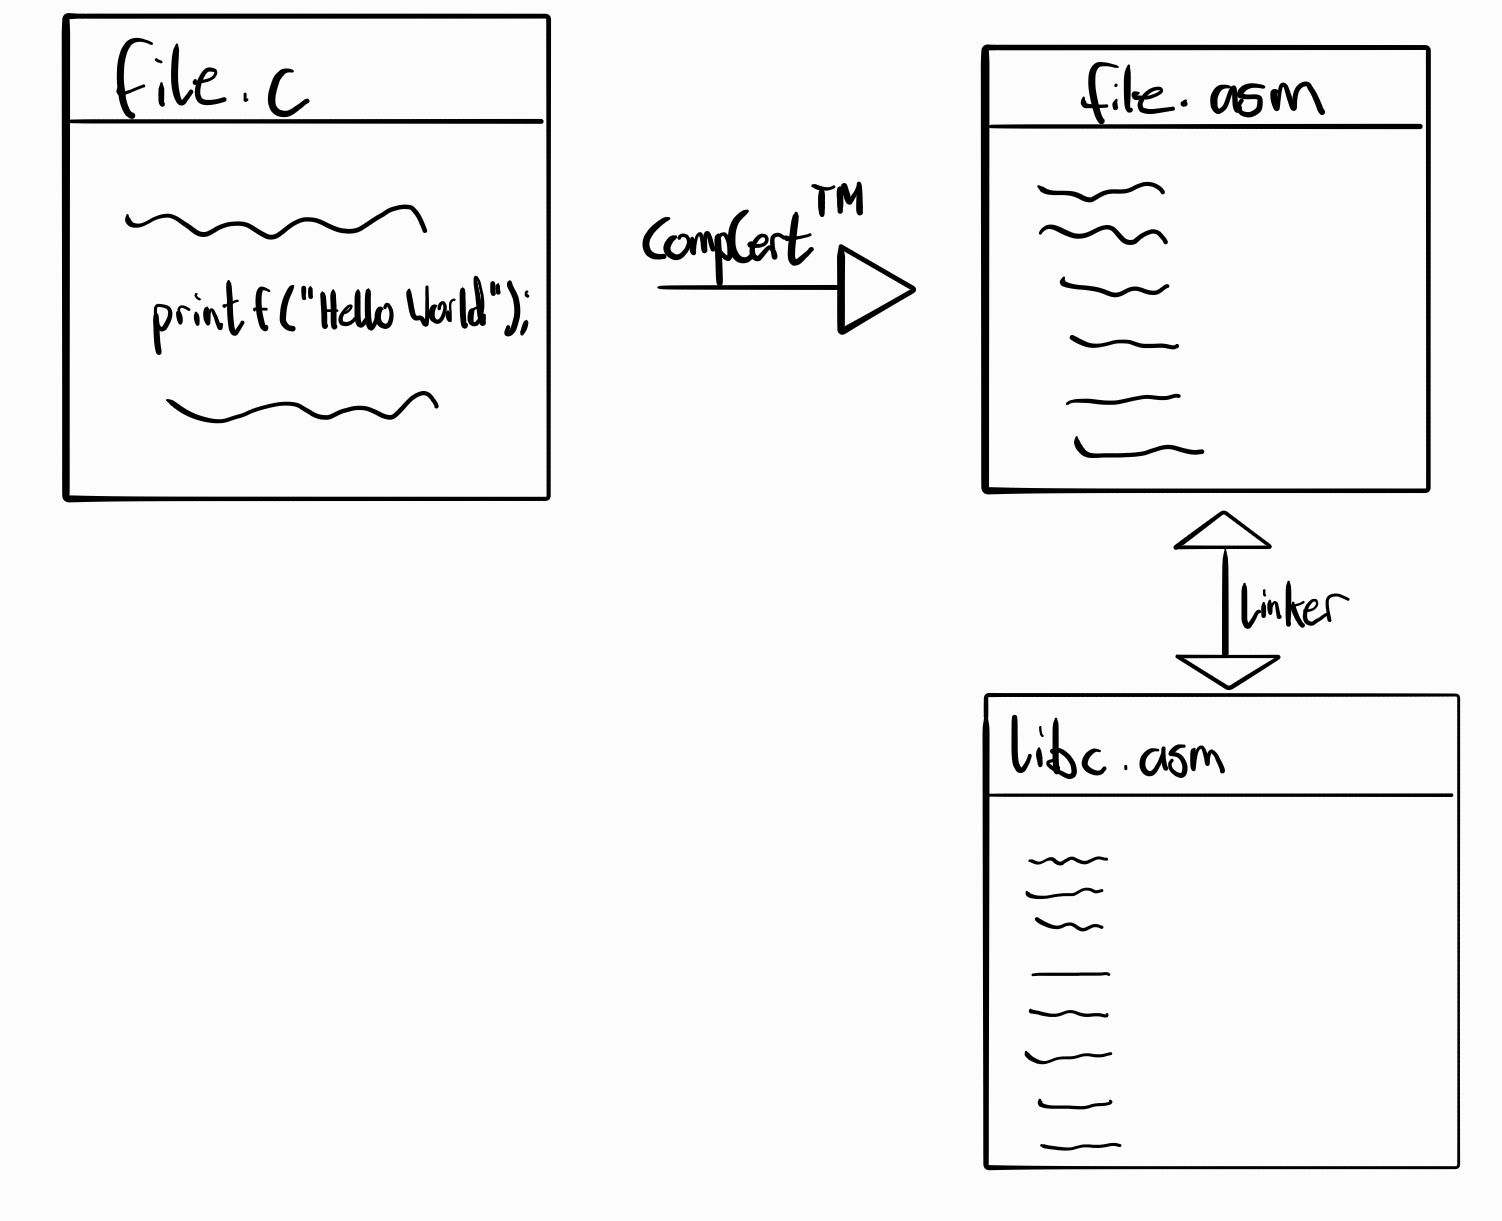 file.c
printf("Hello World");
CompCert™
file.asm
Linker
libc.asm